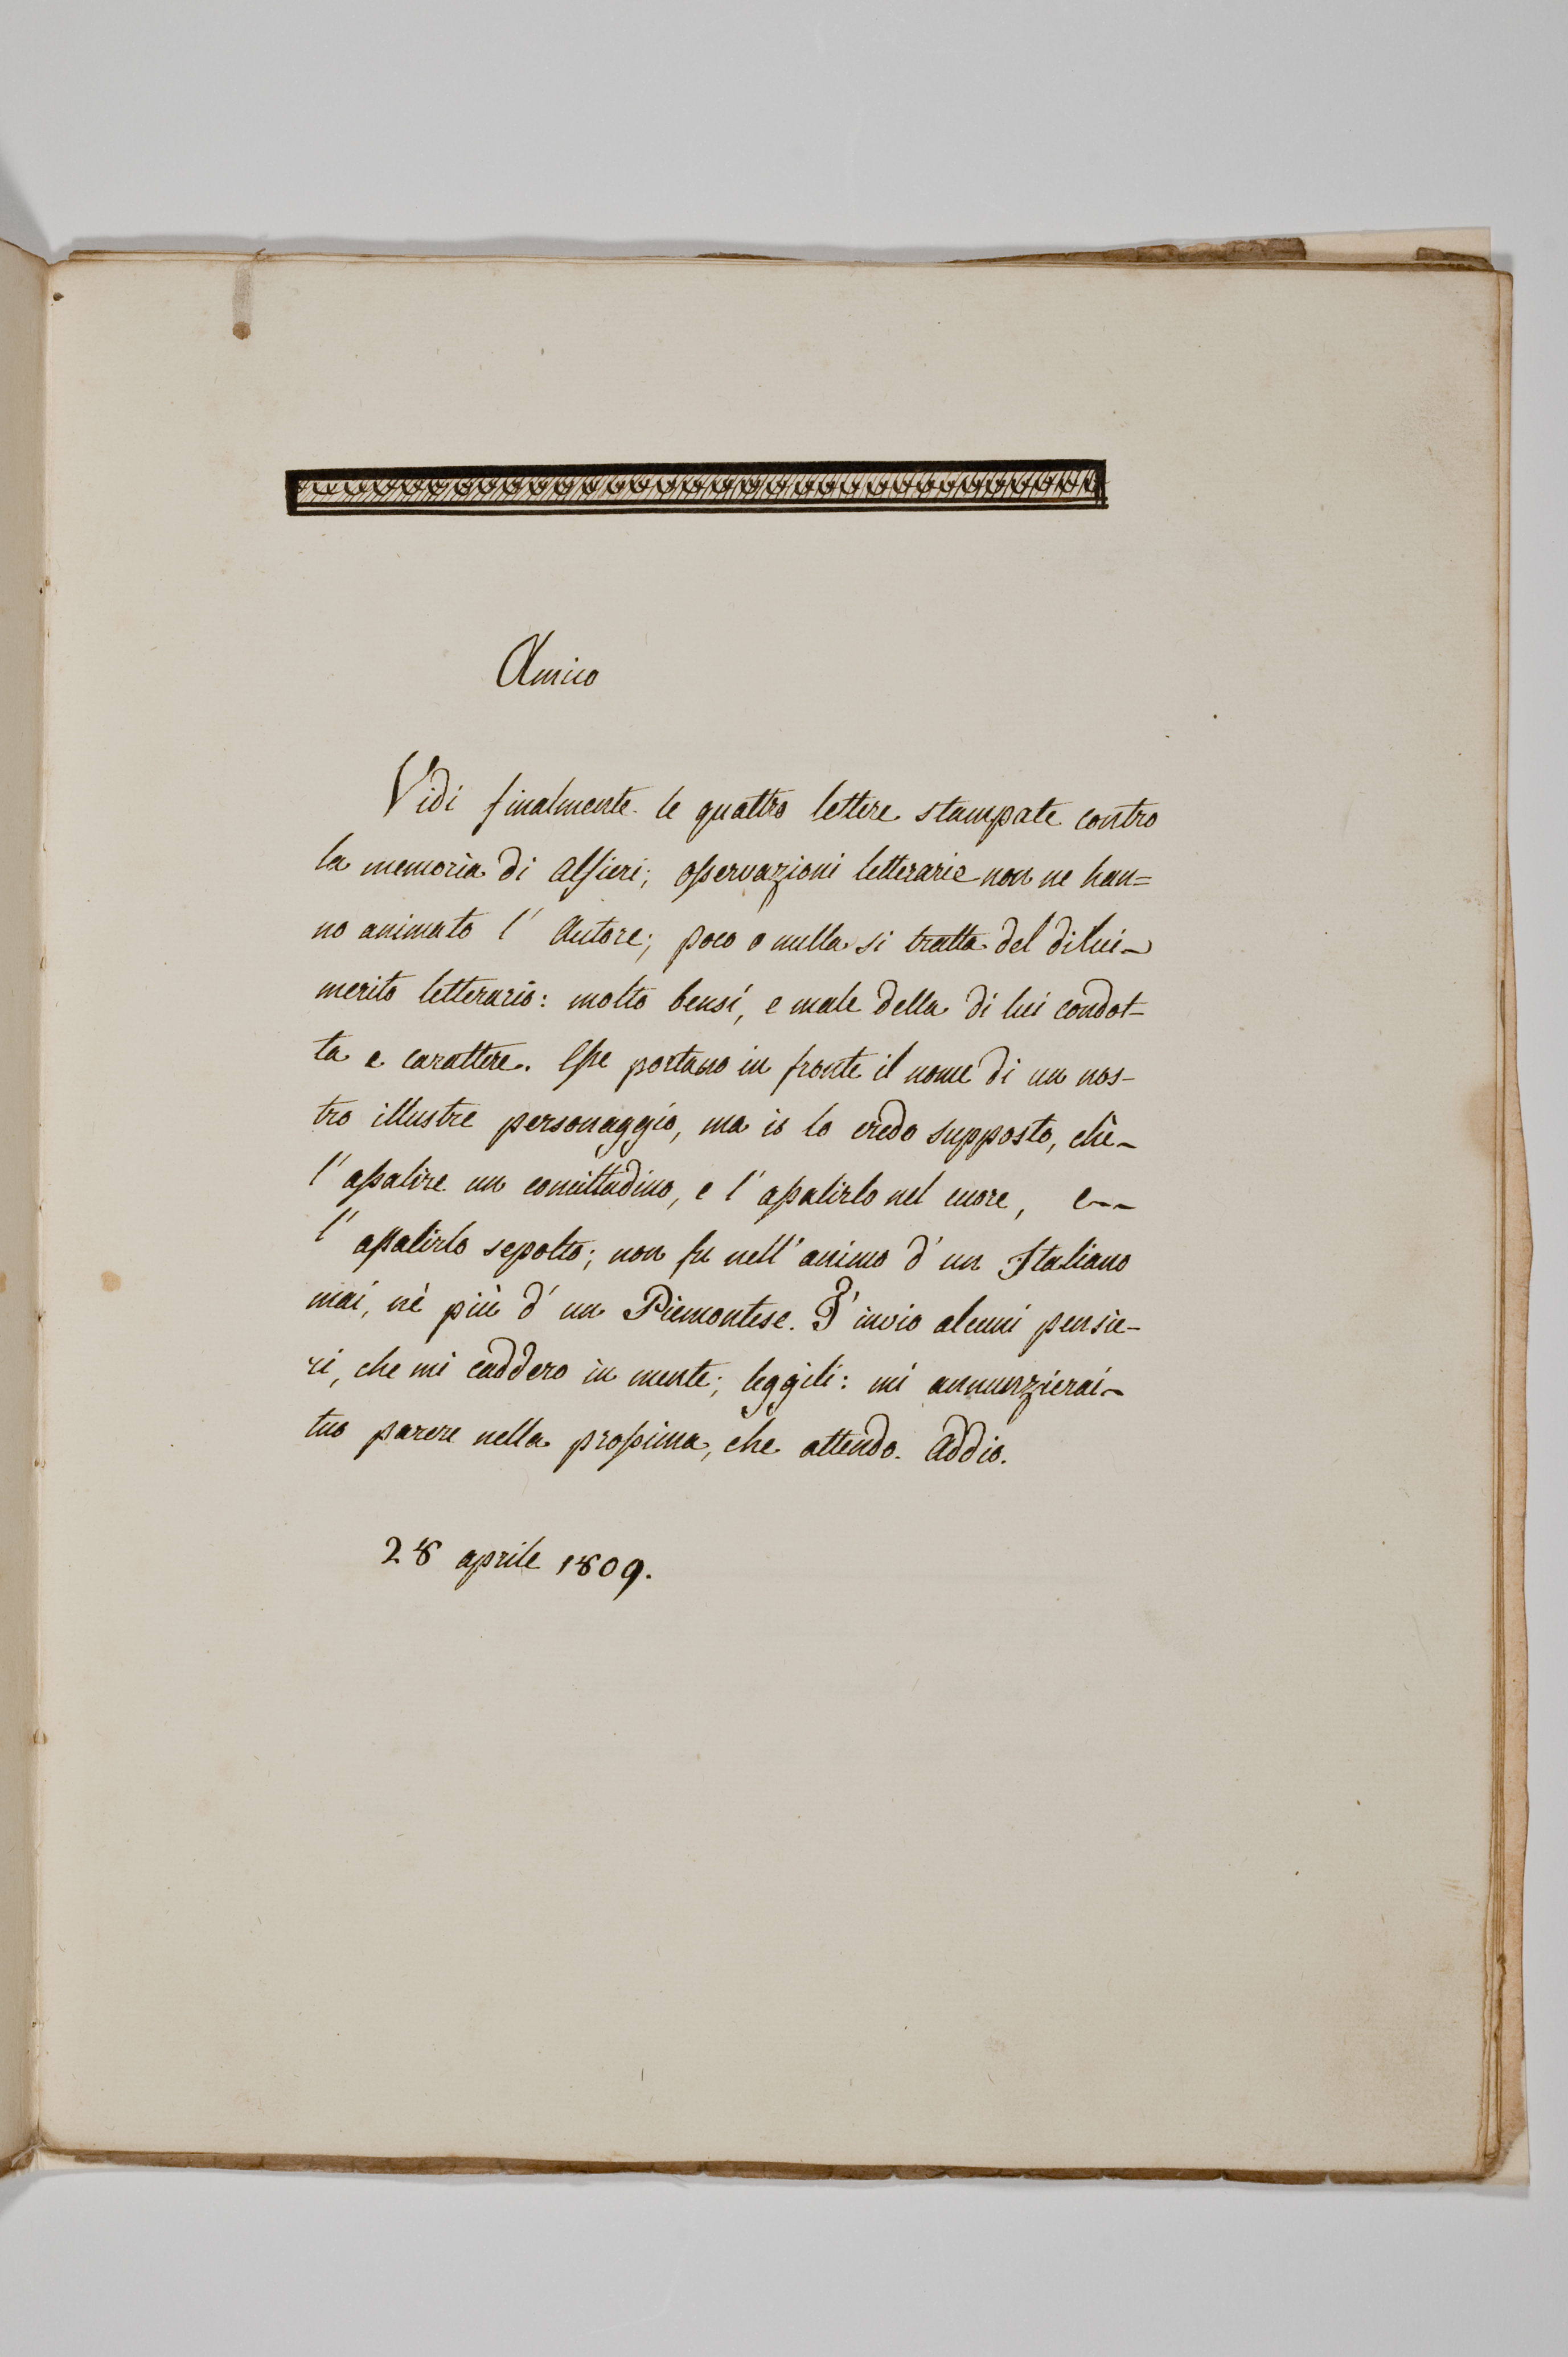 Amico
Vidi finalmente le quattro lettere stampate contro
la memoria di Alfieri; osservazioni letterarie non ne han=
no animato l' Autore; poco o nulla si tratta del di lui
merito letterario: molto bensí, e male della di lui condot-
ta e carattere. Esse portano in fronte il nome di un nos-
tro illustre personaggio, ma io lo credo supposto, chè
l' assalire un concittadino, e l' assalirlo nel cuore, e
l' assalirlo sepolto; non fu nell' animo d' un Italiano
mai, nè più d' un Piemontese. T' invio alcuni pensie-
ri, che mi caddero in mente; leggili: mi annunzierai
tuo parere nella prossima, che attendo. Addio.
28 aprile 1809.